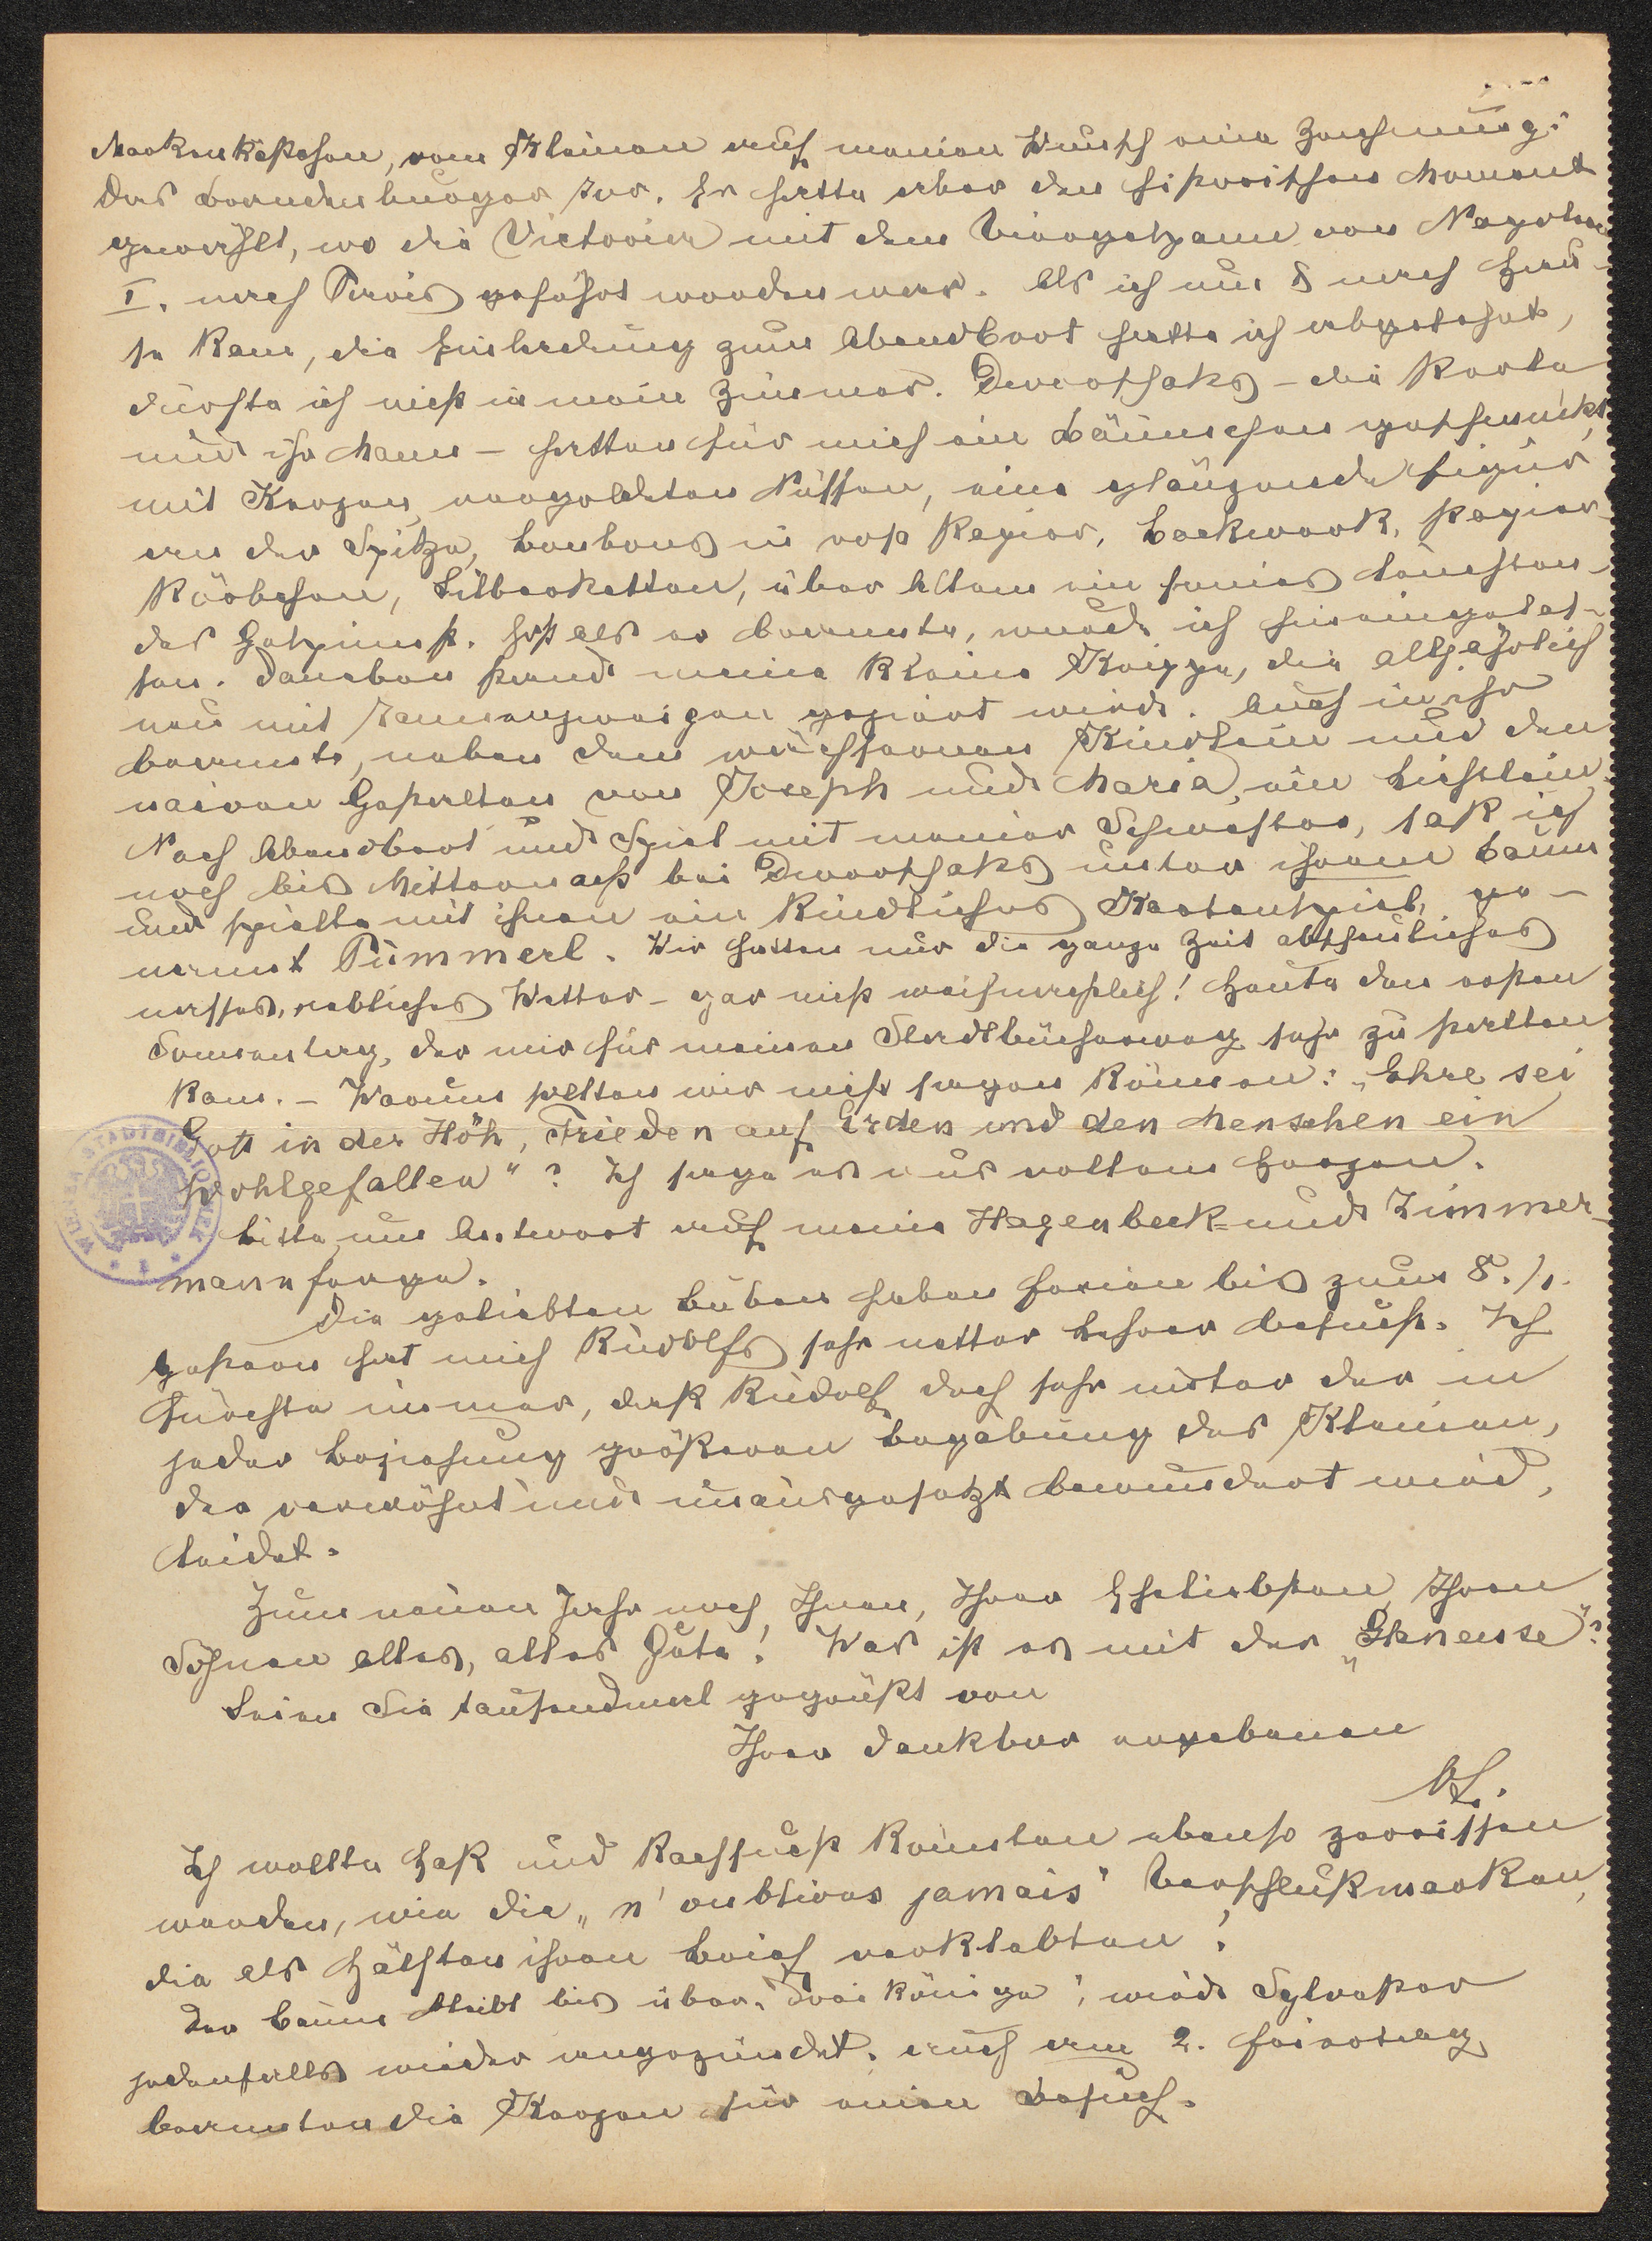 Markenkästchen, vom Kleinen auf meinen Wunsch eine Zeichnung:
das Brandenburger Tor. Er hatte aber den historischen Moment
gewählt, wo die Victoria mit dem Viergespann von Napoleon
I. nach Paris geführt worden war. Als ich um 8 nach Hau-
se kam, die Einladung zum Abendbrot hatte ich abgelehnt,
durfte ich nicht in mein Zimmer. Dworschaks – die Korta
und ihr Mann – hatten für mich ein Bäumchen geschmückt,
mit Kerzen, vergoldeten Nüssen, eine glänzende Figur
an der Spitze, Bonbons in rosa Papier, Backwerk, Papier-
körbchen, Silberketten, über Allem ein feines Leuchten-
des Gespinst. Erst als er brannte, wurde ich hineingelas-
sen. Daneben stand meine kleine Krippe, die alljährlich
neu mit Tannenzweigen geziert wird. Auch in ihr
brannte, neben dem wächsernen Kindlein und den
naiven Gestalten von Joseph und Maria, ein Lichtlein.
Nach Abendbrot und Spiel mit meiner Schwester, saß ich
noch bis Mitternacht bei Dworschaks unter ihrem Baum
und spielte mit ihnen ein kindliches Kartenspiel, ge-
nannt Pummerl. Wir hatten nur die ganze Zeit abscheuliches
nasses, nebliches Wetter – gar nicht weihnachtlich! Heute den ersten
Sonnentag, der mir für meinen Stadtbücherweg sehr zu statten
kam. – Warum sollten wir nicht sagen können: „Ehre sei
Gott in der Höh, Frieden auf Erden und den Menschen ein
Wohlgefallen“? Ich sage es aus vollem Herzen.
Bitte um Antwort auf meine Hagenbeck- und Zimmer-
mannfrage.
Die geliebten Buben haben Ferien bis zum 8./1.
Gestern hat mich Rudolfs sehr netter Lehrer besucht. Ich
fürchte immer, daß Rudolf doch sehr unter der in
jeder Beziehung größeren Begabung des Kleinen,
der verwöhnt und unausgesetzt bewundert wird,
leidet.
Zum neuen Jahr noch Ihnen, Ihrer Geliebten, Ihren
Söhnen alles, alles Gute! Was ist es mit der „Genense“?
Seien Sie tausendmal gegrüßt von
Ihrer dankbar ergebenen
AL.
Ich wollte Haß und Rachsucht könnten ebenso zerrissen
werden, wie die „n'oublions jamais“ Verschlußmarken,
die als Hälften ihren Brief verklebten!
Der Baum bleibt bis über „Drei Könige“, wird Sylvester
jedenfalls wieder angezündet. Auch am 2. Feiertag
brannten die Kerzen für einen Besuch.
WIENER STADTBIBLIOTHEK